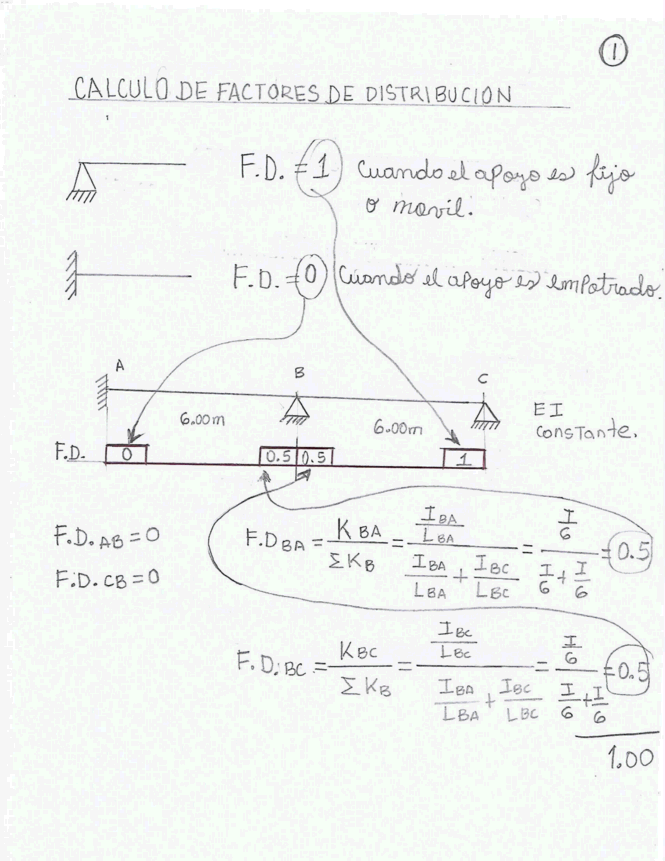 1
CALCULO DE FACTORES DE DISTRIBUCION
F.D. = 1 Cuando el apoyo es fijo
o movil.
F.D. = 0 Cuando el apoyo es empotrado.
A B C
6.00m 6.00m EI
constante.
F.D. 0 0.5 0.5 1
F.D. AB = 0
F.D. CB = 0
F.D BA = K BA / ΣK B = (I BA / L BA) / (I BA / L BA + I BC / L BC) = (I/6) / (I/6 + I/6) = 0.5
F.D. BC = K BC / ΣK B = (I BC / L BC) / (I BA / L BA + I BC / L BC) = (I/6) / (I/6 + I/6) = 0.5
1.00